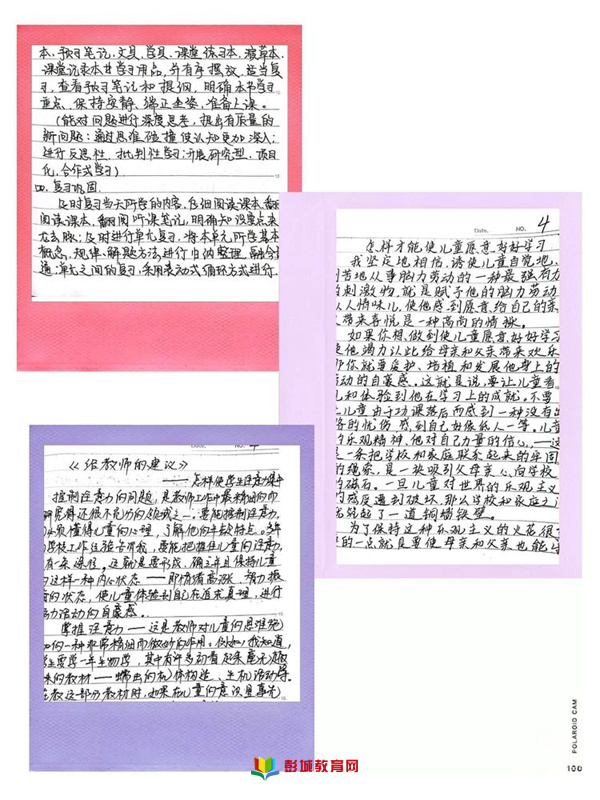 本、预习笔记、文具、学具、课堂练习本、演草本、
课堂记录本等学习用品,并有序摆放,适当复
习,查看预习笔记和提纲,明确本节学习
重点、保持安静、端正坐姿,准备上课。
(能对问题进行深度思考,提出有质量的
新问题;通过思维碰撞使认知更加深入;
进行反思性、批判性学习;开展研究型、项目
化、合作式学习)
四、复习巩固
及时复习当天所学的内容,仔细阅读课本,翻
阅读课本、翻阅听课笔记,明确知识要点来
龙去脉;及时进行单元复习,将本单元所学基本
概念、规律、解题方法进行归纳整理,融会
通;单元之间的复习,采用滚动式循环方式进行
Date. NO. 4
怎样才能使儿童愿意好好学习
我坚定地相信,诱使儿童自觉地、
刻苦地从事脑力劳动的一种最强有力
的刺激物,就是赋予他的脑力劳动
以人情味儿,使他感到愿意给自己的亲
带来喜悦是一种高尚的情操。
如果你想做到使儿童愿意好好学习
使他竭力以此给母亲和父亲带来欢乐
那你就要爱护、培植和发展他身上的
劳动的自豪感。这就是说,要让儿童看
见和体验到他在学习上的成就。不要
让儿童由于功课落后而感到一种没有出
路的忧伤,感到自己好像低人一等。儿童
的乐观精神,他对自己力量的信心,——这
是一条把学校和家庭联系起来的牢固
的绳索,是一块吸引父母亲心向学校
的磁石。一旦儿童对世界的乐观主义
的感受遭到破坏,那么学校和家庭之间
就竖起了一道铜墙铁壁。
为了保持这种乐观主义的火花,很
要的一点就是要使母亲和父亲也能
Date. NO. 4
《给教师的建议》
——怎样使学生注意力集中
控制注意力的问题,是教师工作中最精细的而
研究得还很不充分的领域之一。要能控制注意力,
必须懂得儿童的心理,了解他的年龄特点。多年
的学校工作经验告诉我,要能把握住儿童的注意力,
只有一条途径,这就是要形成、确立并且保持儿童
的这样一种内心状态——即情绪高涨、智力振
奋的状态,使儿童体验到自己在追求真理,进行
脑力活动的自豪感。
掌握注意力——这是教师对儿童的思维施
加的一种非常精细而微妙的作用。例如,我知道,
学生要学一年生物学,其中有许多初看起来毫无趣
味的教材——蠕虫的机体构造、生机活动等。
在教这部分教材时,如果在儿童的意识里事先
POLAROID CAM
100
彭城教育网